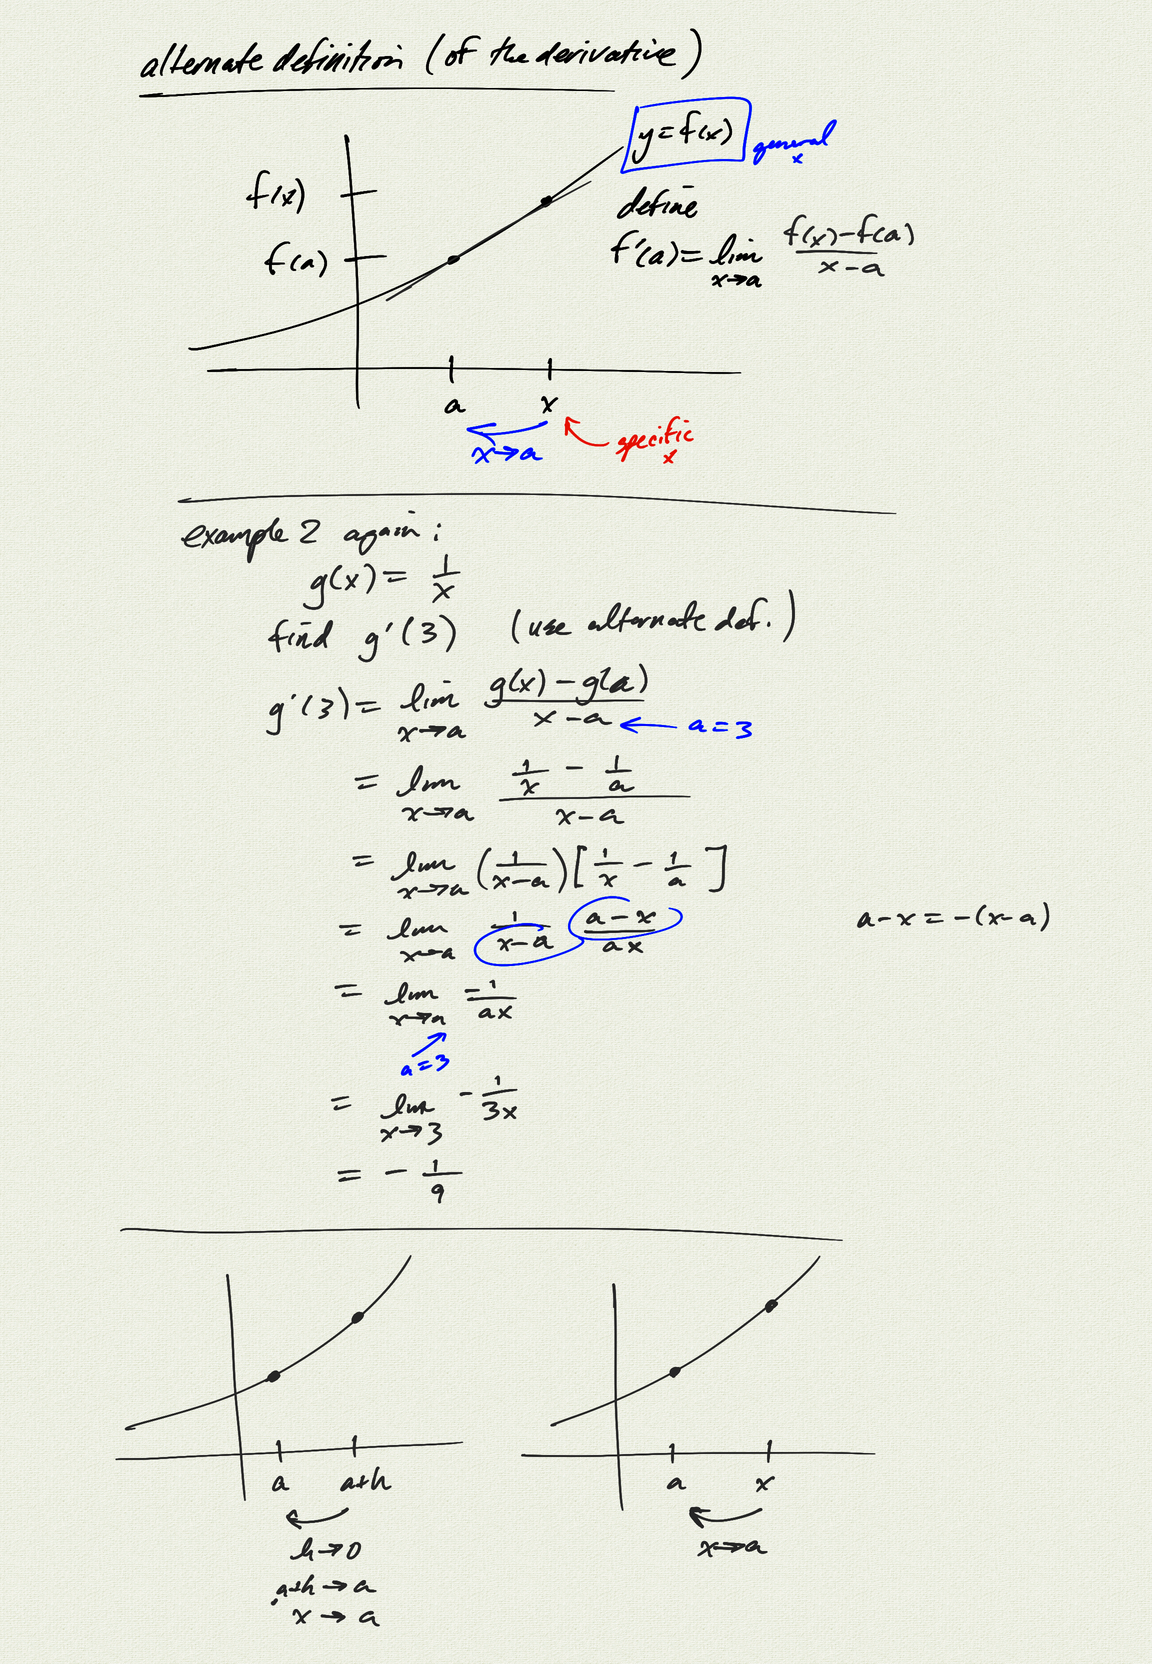 alternate definition (of the derivative)
y = f(x)
general x
f(x)
define
f(a)
f'(a) = lim x→a (f(x) - f(a))/(x - a)
a x
x→a
specific x
example 2 again:
g(x) = 1/x
find g'(3) (use alternate def.)
g'(3) = lim x→a (g(x) - g(a))/(x - a) ← a = 3
= lim x→a (1/x - 1/a)/(x - a)
= lim x→a (1/(x-a)) [1/x - 1/a]
= lim x→a 1/(x-a) (a-x)/(ax)
a-x = -(x-a)
= lim x→a -1/(ax)
a = 3
= lim x→3 -1/(3x)
= -1/9
a a+h
h→0
a+h→a
x→a
a x
x→a